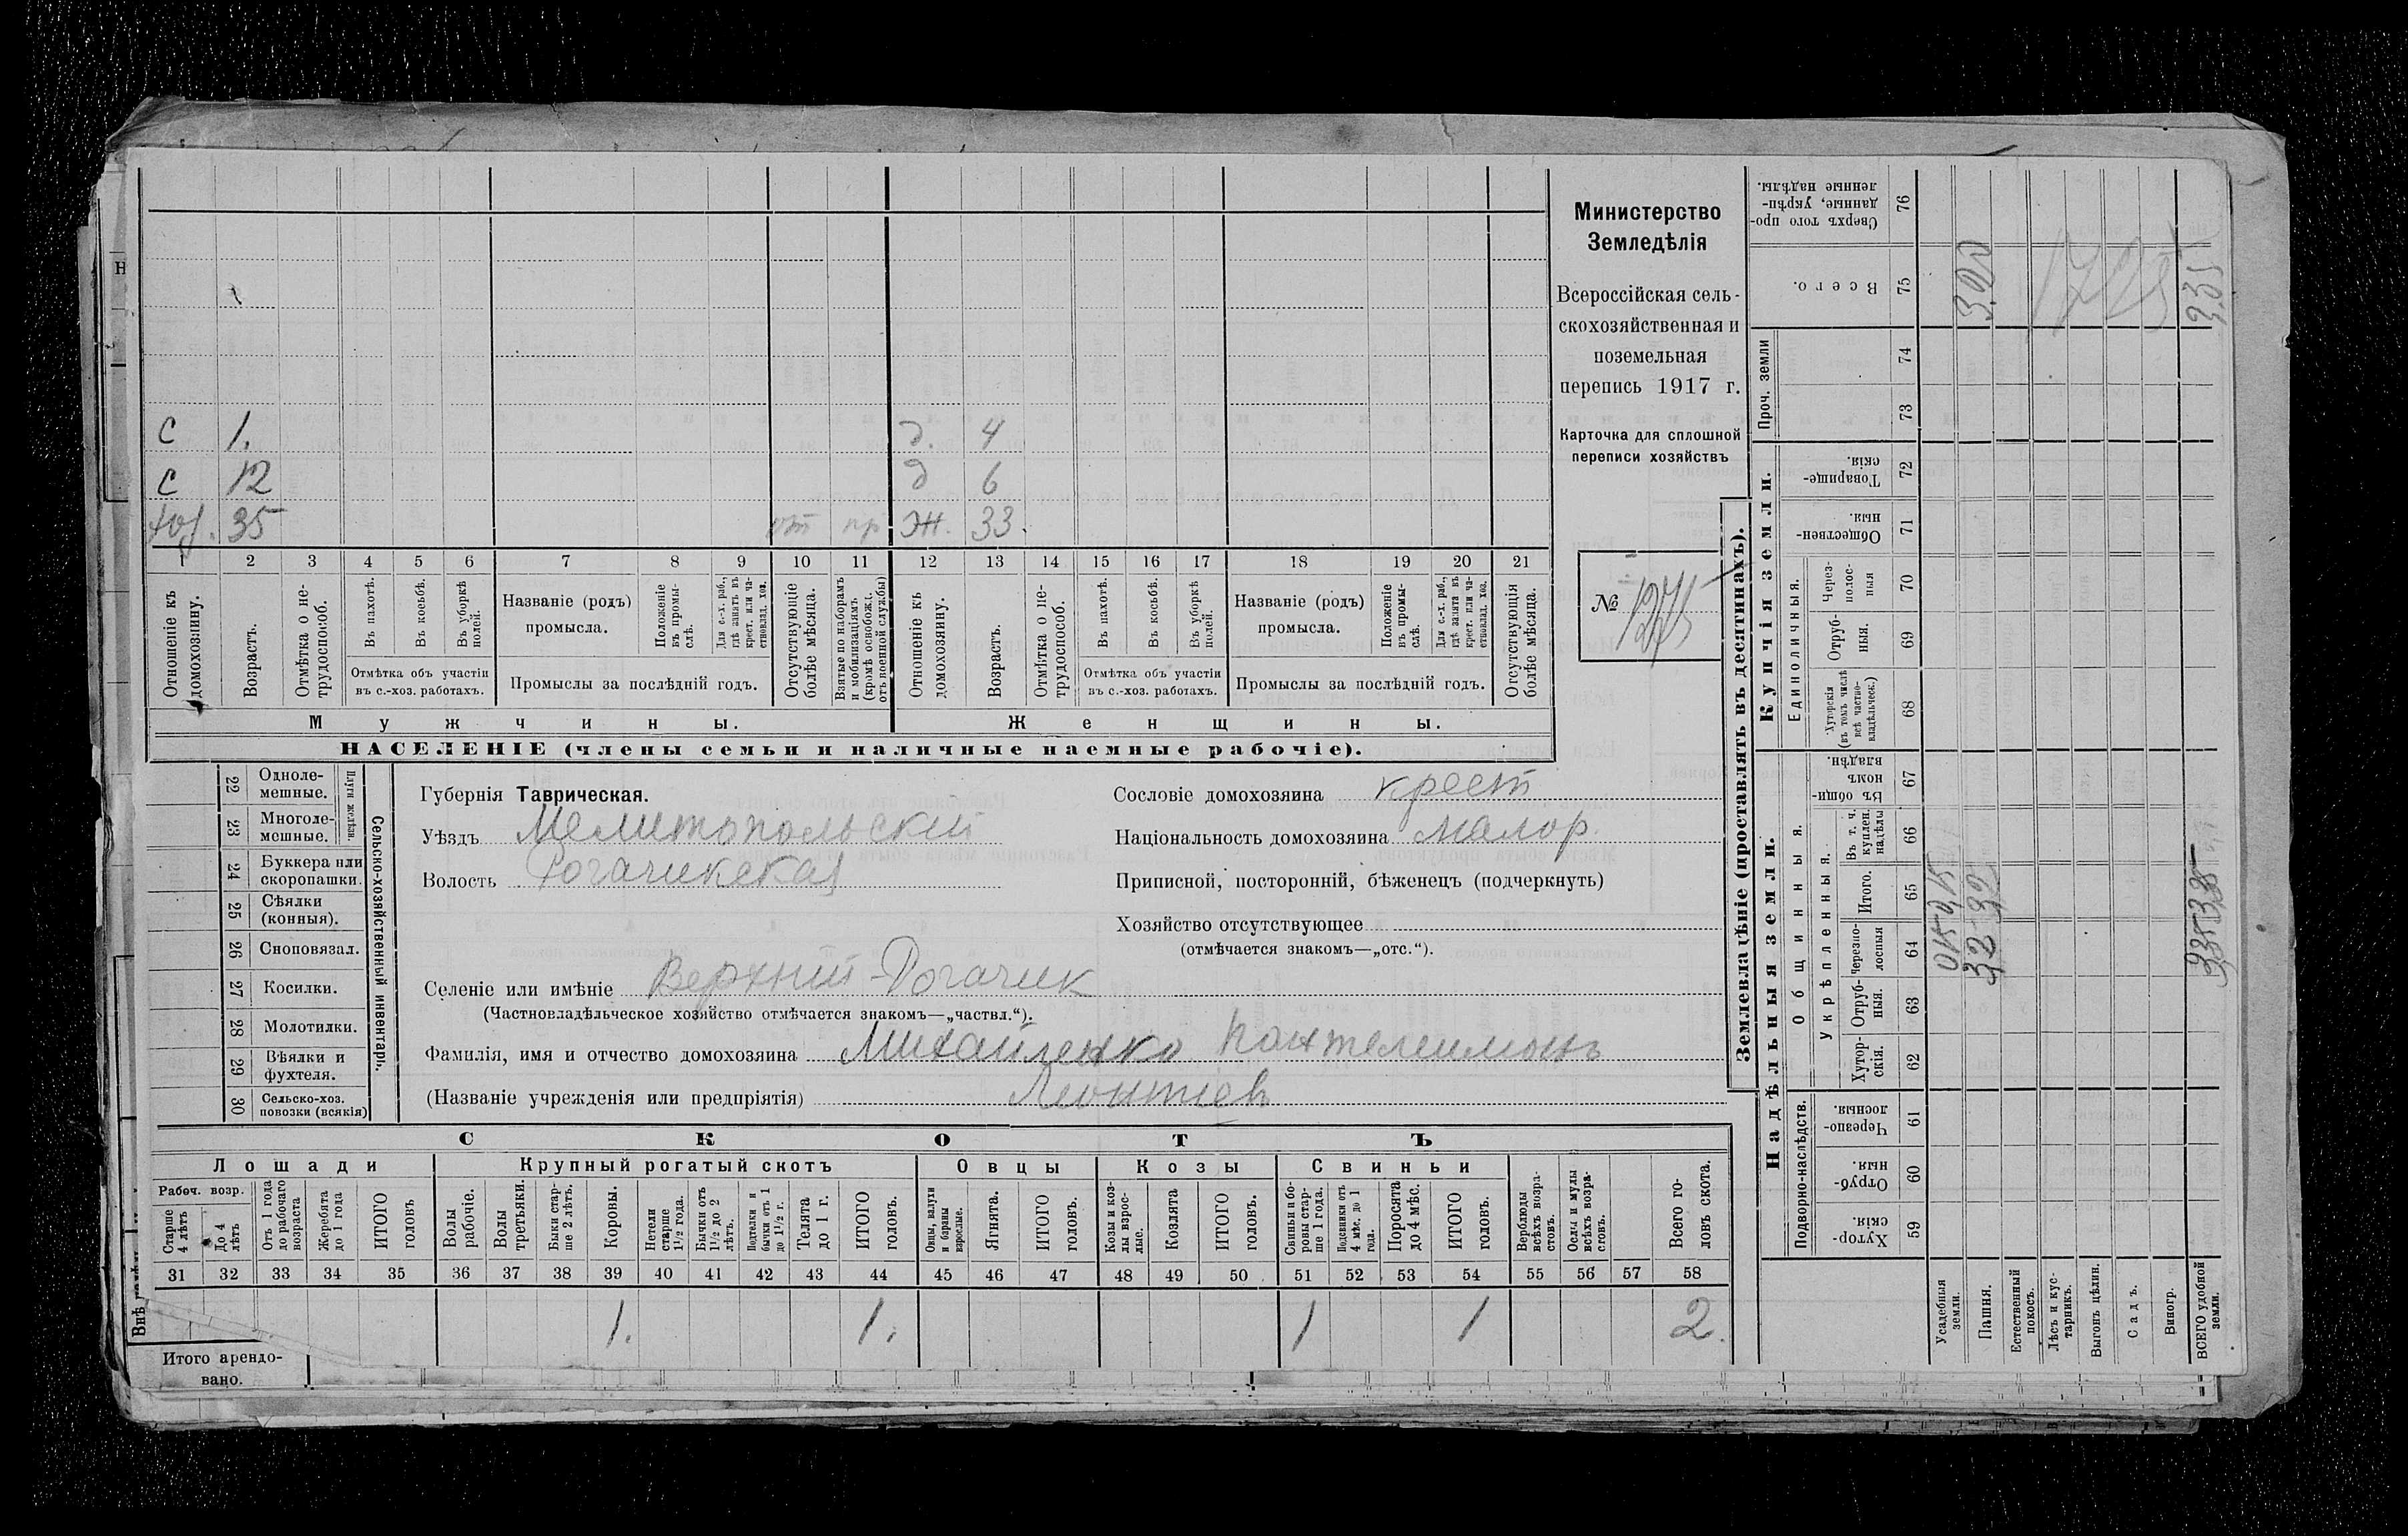 Министерство
Земледѣлія
Всероссійская сель-
скохозяйственная и
поземельная
перепись 1917 г.
Карточка для сплошной
переписи хозяйствъ
№
с 1. д. 4
с 12 д 6
35 отт пр ж. 33.
1 2 3 4 5 6 7 8 9 10 11 12 13 14 15 16 17 18 19 20 21
Отношеніе къ домохозяину.
Возрастъ.
Отмѣтка о не-трудоспособ.
Въ пахотѣ.
Въ косьбѣ.
Въ уборкѣ полей.
Отмѣтка объ участіи
въ с.-хоз. работахъ.
Названіе (родъ)
промысла.
Положеніе въ промы-слѣ.
Для с.-х. раб., гдѣ занятъ въ крест. или ча-стновлад. хоз.
Промыслы за послѣдній годъ.
Отсутствующіе болѣе мѣсяца.
Взятые по наборамъ и мобилизаціямъ (кромѣ освобожд. отъ военной службы)
Отношеніе къ домохозяину.
Возрастъ.
Отмѣтка о не-трудоспособ.
Въ пахотѣ.
Въ косьбѣ.
Въ уборкѣ полей.
Отмѣтка объ участіи
въ с.-хоз. работахъ.
Названіе (родъ)
промысла.
Положеніе въ промы-слѣ.
Для с.-х. раб., гдѣ занята въ крест. или ча-стновлад. хоз.
Промыслы за послѣдній годъ.
Отсутствующія болѣе мѣсяца.
Мужчины. Женщины.
НАСЕЛЕНІЕ (члены семьи и наличные наемные рабочіе).
Сельско-хозяйственный инвентарь.
Плуги желѣзн.
22 Одноле-мешные.
23 Многоле-мешные.
24 Буккера или скоропашки.
25 Сѣялки (конныя).
26 Сноповязал.
27 Косилки.
28 Молотилки.
29 Вѣялки и фухтеля.
30 Сельско-хоз. повозки (всякія)
Губернія Таврическая.
Уѣздъ Мелитопольский
Волость Рогачикская
Селеніе или имѣніе Верхний-Рогачик
(Частновладѣльческое хозяйство отмѣчается знакомъ—„частвл.“).
Фамилія, имя и отчество домохозяина Михайленко Пантелеимонъ
(Названіе учрежденія или предпріятія) Леонтиев
Сословіе домохозяина крест
Національность домохозяина малор.
Приписной, посторонній, бѣженецъ (подчеркнуть)
Хозяйство отсутствующее
(отмѣчается знакомъ—„отс.“).
СКОТЪ
Лошади Крупный рогатый скотъ Овцы Козы Свиньи
Рабоч. возр.
Старше 4 лѣтъ
До 4 лѣтъ
Отъ 1 года до рабочаго возраста
Жеребята до 1 года
ИТОГО головъ
Волы рабочіе.
Волы третьяки.
Быки стар-ше 2 лѣтъ.
Коровы.
Нетели старше 1½ года.
Бычки отъ 1½ до 2 лѣтъ.
Подтелки и бычки отъ 1 до 1½ г.
Телята до 1 г.
ИТОГО головъ.
Овцы, валухи и бараны взрослые.
Ягнята.
ИТОГО головъ.
Козы и коз-лы взрос-лые.
Козлята
ИТОГО головъ.
Свиньи и бо-ровы стар-ше 1 года.
Подсвинки отъ 4 мѣс. до 1 года.
Поросята до 4 мѣс.
ИТОГО головъ.
Верблюды всѣхъ возра-стовъ.
Ослы и мулы всѣхъ возра-стовъ.
Всего го-ловъ скота.
31 32 33 34 35 36 37 38 39 40 41 42 43 44 45 46 47 48 49 50 51 52 53 54 55 56 57 58
1. 1. 1 1 2.
Внѣ
Итого арендо-
вано.
Землевладѣніе (проставлять въ десятинахъ).
Надѣльныя земли.
Купчія земли.
Проч. земли
Подворно-наслѣдств.
Общинныя.
Укрѣпленныя.
Единоличныя.
Сверхъ того про-данные, укрѣп-ленные надѣлы. 76
Всего. 75
74
73
Товарище-скія. 72
Обществен-ныя. 71
Через-полос-ныя 70
Отруб-ныя. 69
Хуторскія (въ томъ числѣ всѣ частно-владѣльческ.) 68
Въ общин-номъ владѣн. 67
Въ т. ч. куплен. надѣлы 66
Итого. 65
Черезпо-лосныя 64
Отруб-ныя. 63
Хутор-скія. 62
Черезпо-лосныя. 61
Отруб-ныя. 60
Хутор-скія. 59
Усадебныя земли.
Пашня.
Естественный покосъ.
Лѣсъ и кус-тарникъ.
Выгонъ цѣлин.
Садъ.
Виногр.
ВСЕГО удобной земли.